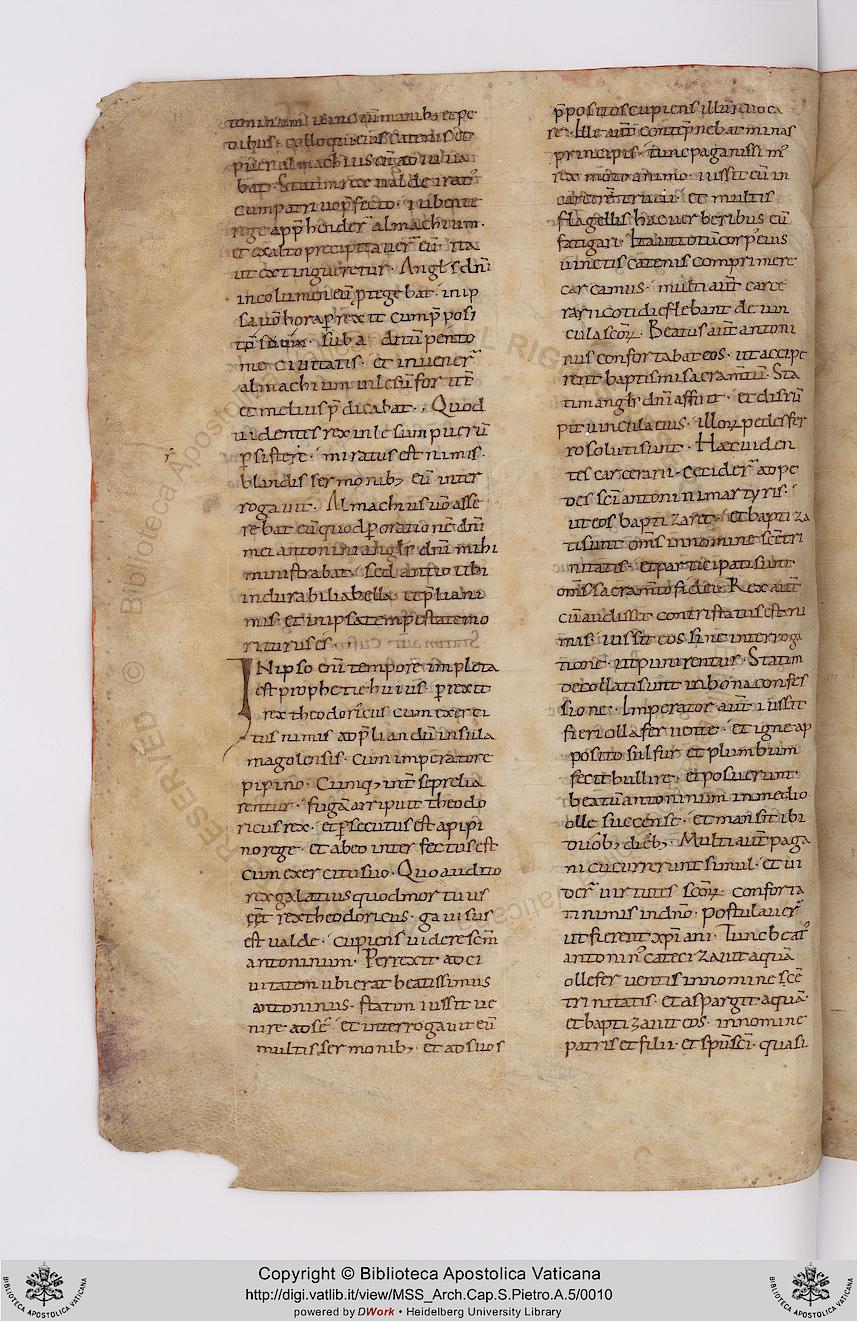 toninum
tibus· colloquiis catenis et
puer almachius
bat· Statim rex ualde irat᷒
cum patri suo p̄fecto· iubente
rege app̄hender̄ almachium·
et ex alto precipitauer̄ eū· ita
ut extingueretur· Angl̄s dn̄i
incolumen eū p̄tegebat· in ip
sa uō hora prexit cum p̄posi
to sub a dituū pento
me ciuitatis· et inuener̄
almachium inlesū fortē
et melius p̄dicabat·, Quod
uidentes rex inlesum puerū
p̱sistere· miratus est nimis·
blandis sermonib; eū inter
rogauit· Almachius uō asse
rebat eū quod p̱ orationē dn̄i
mei antonini angl̄s dn̄i mihi
ministrabat· sed antio tibi
indurabilia bella· et p̱lia ni
mis· et in ipsa tempestate mo
riturus es·
INipso eni tempore impleta
est prophetie huius· prexit
rex theodoricus cum exerci
tus nimis ad p̱liandū insula
magolensis· cum imperatore
pipino· Cumq; int̄ se prelia
rentur· fugā arripuit theodo
ricus rex· et p̱secutus est a pipi
no rege· et ab eo interfectus est
cum exercitu suo· Quo audito
rex galatius quod mortuus
eēt rex theodoricus· gauisus
est ualde· cupiens uidere sc̄m
antoninum· Perrexit ad ci
uitatem ubi erat beatissimus
antoninus· statim iussit ue
nire ad se· et interrogauit eū
multis sermonib; et ad suos
p̄positos cupiens illum uoca
re· Ille aut̄ contēpnebat minas
principis· tunc paganissim᷒
rex moto animo· iussit eū in
carcerē trudi· et multis
flagellis hac uerberibus eū
fatigari· Ita ut totū corp᷒ eius
uinctis catenis comprimere
carcamus· multi aut̄ carce
rarii cotidie flebant de uin
cula sc̄oꝝ· Beatus aut̄ antoni
nus confortabat eos· ut accipe
rent baptismi sacramtū· Sta
tim angl̄s dn̄i affuit· et disrū
pit uincula eius· illoꝝ pedes fer
ro soluti sunt· Haec uiden
tes carcerarii· ceciderꝰ ad pe
des sc̄i antonini martyris·
ut eos baptizaret· et baptiza
ti sunt oms in nomine sc̄e tri
nitatis· et participati sunt
oms sacramto fidei· Rex aut̄
cū audisset contristatus est ni
mis· iussit eos sine interroga
tione· ut punirentur· Statim
decollati sunt in bona confes
sione·. Imperator aut̄ iussit
fieri olla feruente· et igne ap
posito sulfur et plumbum
fecit bullire· et posuerunt
beatū antoninum in medio
olle succense· et mansit ibi
duob; dieb; Multi aut̄ paga
ni cucurrerunt simul· et ui
der̄ uirtutes sc̄oꝝ· conforta
ti nimis in dn̄o· postulauer̄
ut fierent xp̄iani· Tunc beat᷒
antonin᷒ catecizauit aquā
olle feruentis in nomine sc̄e
trinitatis· et aspargit aquā·
et baptizauit eos· in nomine
patris et filii· et sp̄us sc̄i· quasi
Copyright © Biblioteca Apostolica Vaticana
http://digi.vatlib.it/view/MSS_Arch.Cap.S.Pietro.A.5/0010
powered by DWork • Heidelberg University Library